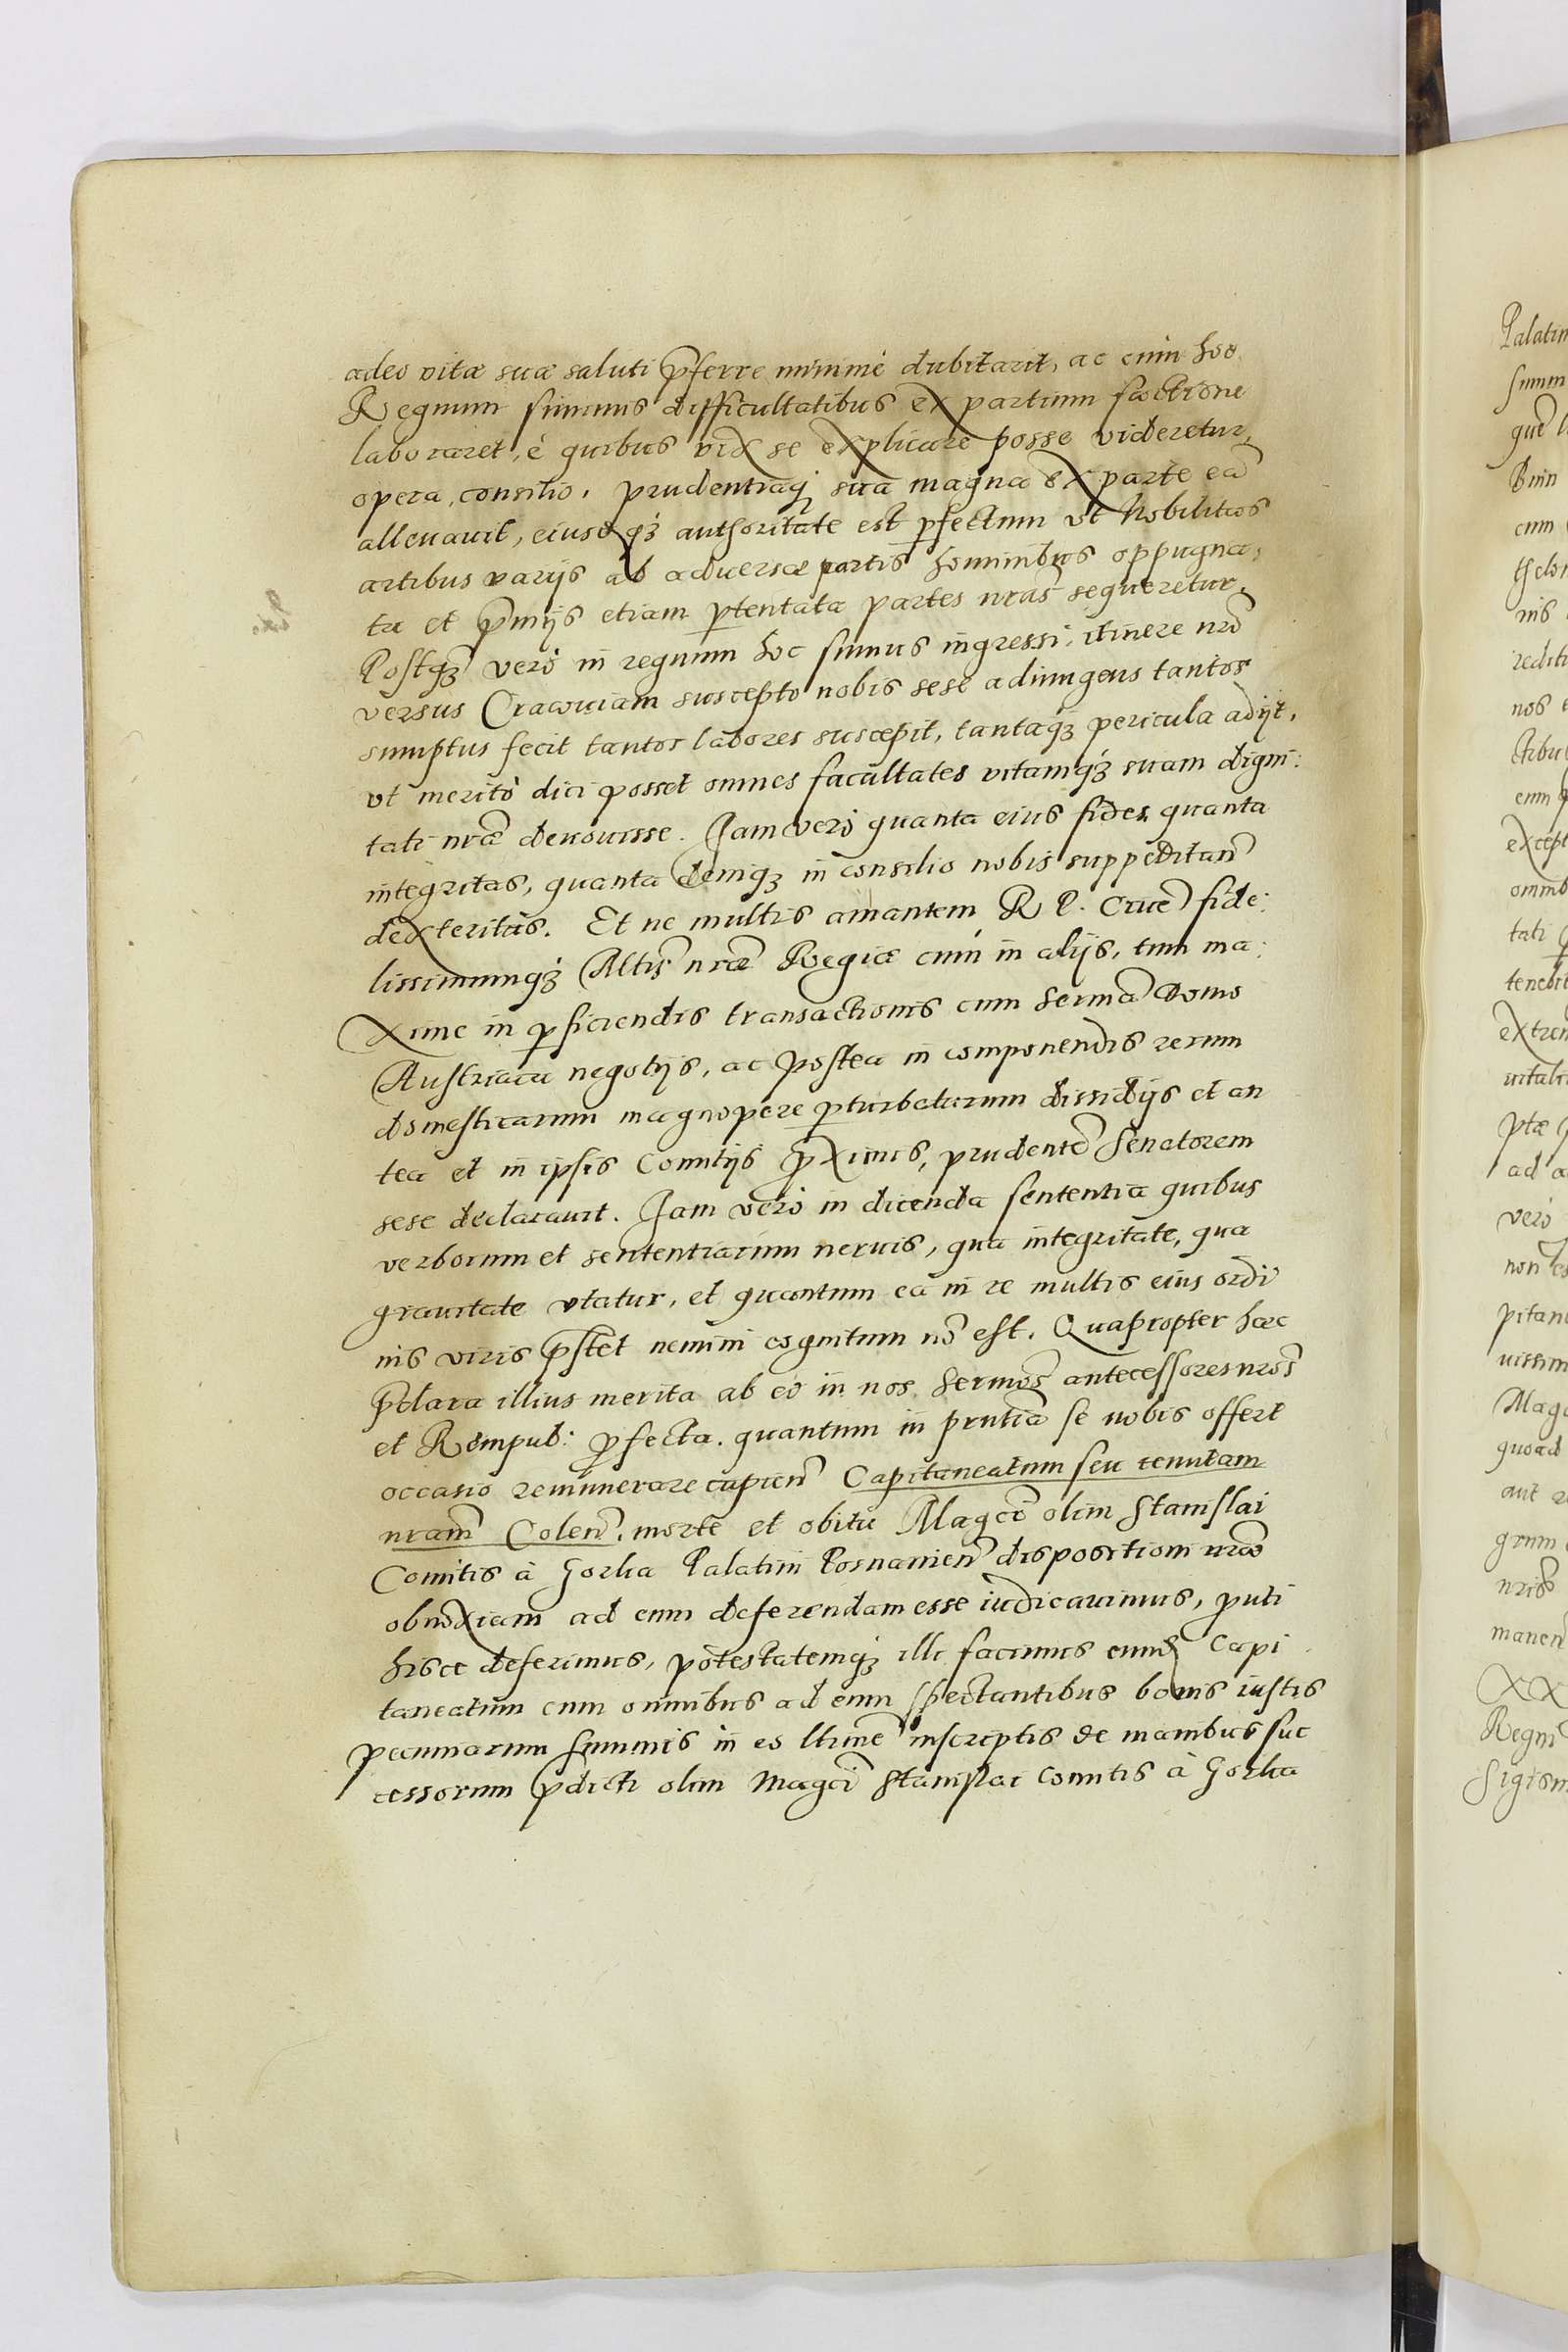 adeo vitæ suæ saluti p̃ferre minimè dubitarit, ac cum hoc
Regnum summis difficultatibus ex partium factione
laboraret, è quibus vix se explicare posse videretur,
opera, consilio, prudentiaq; sua magna ex parte eã
alleuauit, eiusq3 authoritate est pfectum vt Nobilitas
artibus varijs ab aduersæ partis hominibus oppugna,
ta et p̃mijs etiam ptentata partes nras̃ sequeretur,
Postq̃3 verò in regnum hoc sumus ingressi, itinere nrõ
versus Cracouiam suscepto nobis sese adiungens tantos
sumptus fecit tantos labores suscepit, tantaq3 pericula adijt,
vt meritò dici posset omnes facultates vitamq3 suam digni:
tati nræ̃ deuouisse. Jam verò quanta eius fides, quanta
integritas, quanta deniq3 in consilio nobis suppeditan̄
dexteritas. Et ne multis amantem R P. ciuẽ fide:
lissimumq3 Altis̃ nræ̃ Regiæ cum in alijs, tum ma:
xime in pficiendis transactionis cum Serma Domo
Austriaca negotijs, ac postea in componendis rerum
domesticarum magnopere pturbatarum dissidijs et an
tea et in ipsis Comitijs p̃ximis, prudentẽ Senatorem
sese declarauit. Jam verò in dicenda sententia quibus
verborum et sententiarum neruis, qua integritate, qua
grauitate vtatur, et quantum ea in re multis eius ordi
nis viris p̃stet nemini cognitum nõ est. Quapropter hæc
p̃clara illius merita ab eo in nos Sermos̃ antecessores nros̃
et Rempub: pfecta. quantum in pñtia se nobis offert
occasio remunerare capien̄ Capitaneatum seu tenutam
nram̃ Colen̄. morte et obitu Magci olim Stanislai
Comitis à Gorka Palatini Posnanien̄ dispositioni nræ̃
obnoxiam ad eum deferendam esse iudicauimus, puti
hisce deferimus, potestatemq3 illi facimus eund̃ Capi
taneatum cum omnibus ad eum spectantibus bonis iustis
pecuniarum summis in eo ltime inscriptis de manibus suc
cessorum p̃dicti olim Magci Stanislai Comitis à Gorka
Palatin
summ
quẽ
Bnin
cum
nis
redit
nos
ctibu
eum
except
omnib
tati
tenebit
extrem
uitali
ptæ
ad a
verò
non
pitan
uissim
Magc
quoad
aut
grum
nris
manen
XX
Regni
Sigism